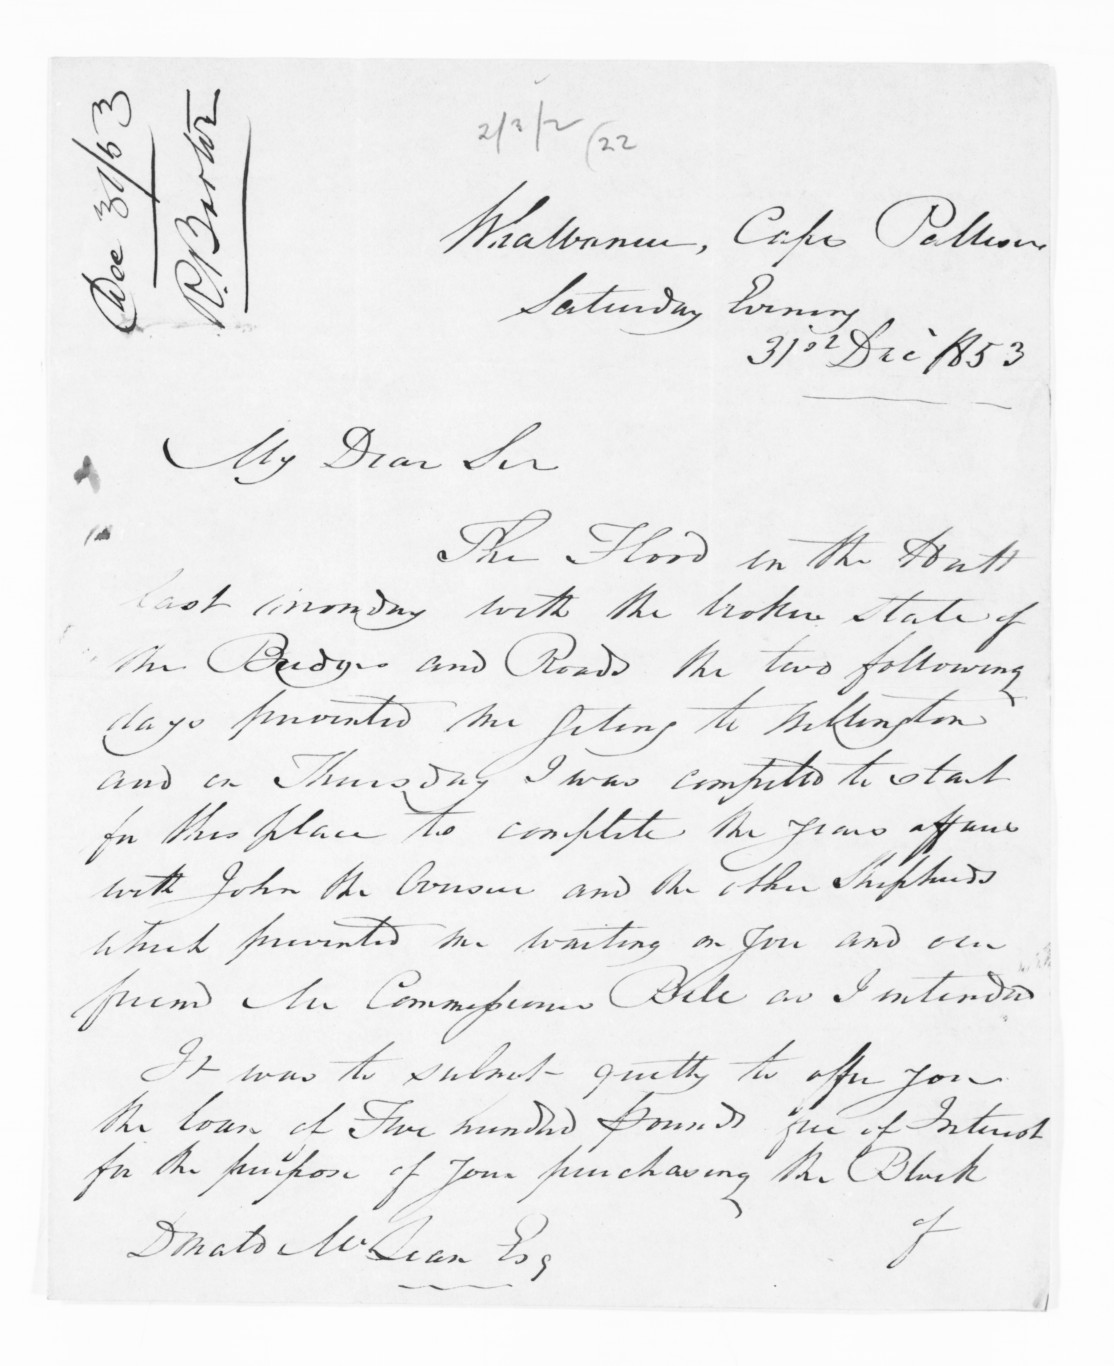 Dec 31/53
R. Barton
2/3/2 (22
Whalbonui, Cape Pallisur
Saturday Evening
31st Dec 1853
My Dear Sir
The Flood in the Hutt
last monday with the broken state of
the Bridges and Roads the two following
days prevented me geting to Wellington
and on Thursday I was compelled to start
for this place to complete the years affairs
with John the and the other Shepherds
which prevented me waiting on you and our
friend Mr Commissioner Bell as I intended
It was to submit quietly to offer you
the loan of Five hundred pounds free of Interest
for the purpose of your purchasing the Block
of
Donald McLean Esq